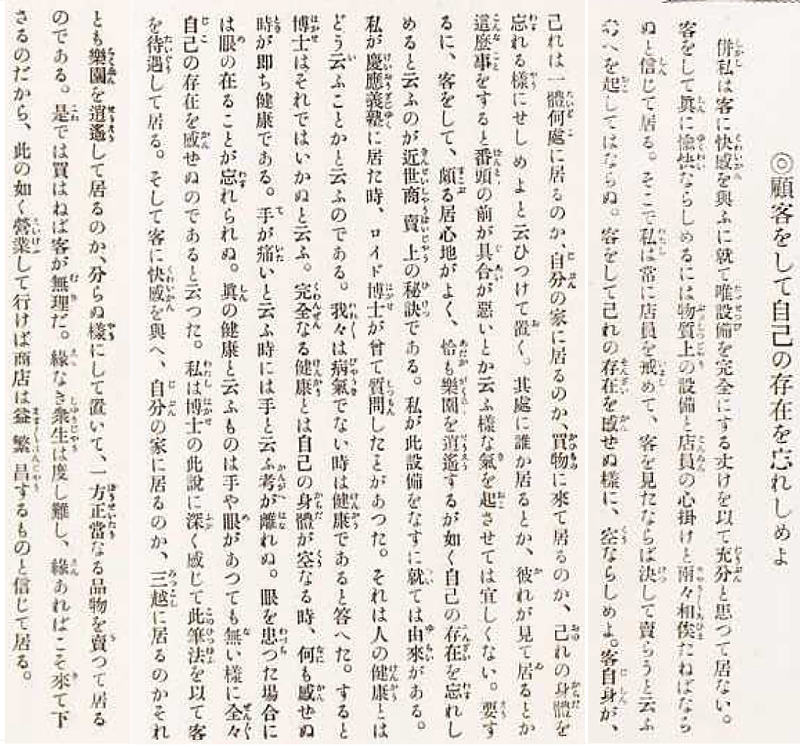 ◎顧客をして自己の存在を忘れしめよ
併私は客に快感を與ふに就て唯設備を完全にする丈けを以て充分と思つて居ない。
客をして眞に愉快ならしめるには物質上の設備と店員の心掛けと兩々相俟たねばなら
ぬと信じて居る。そこで私は常に店員を戒めて、客を見たならば決して賣らうと云ふ
へを起してはならぬ。客をして己れの存在を感せぬ樣に、空ならしめよ。客自身が、
己れは一體何處に居るのか、自分の家に居るのか、買物に來て居るのか、己れの身體を
忘れる樣にせしめよと云ひつけて置く。其處に誰か居るとか、彼れが見て居るとか
這麼事をすると番頭の前が具合が惡いとか云ふ樣な氣を起させては宜しくない。要す
るに、客をして、頗る居心地がよく、恰も樂園を逍遙するが如く自己の存在を忘れし
めると云ふのが近世商賣上の秘訣である。私が此設備をなすに就ては由來がある。
私が慶應義塾に居た時、ロイド博士が曾て質問したことがあつた。それは人の健康とは
どう云ふことかと云ふのである。我々は病氣でない時は健康であると答へた。すると
博士はそれではいかぬと云ふ。完全なる健康とは自己の身體が空なる時、何も感せぬ
時が即ち健康である。手が痛いと云ふ時には手と云ふ考が離れぬ。眼を患つた場合に
は眼の在ることが忘れられぬ。眞の健康と云ふものは手や眼があつても無い樣に全々
自己の存在を感せぬのであると云つた。私は博士の此說に深く感じて此筆法を以て客
を待遇して居る。そして客に快感を與へ、自分の家に居るのか、三越に居るのかそれ
とも樂園を逍遙して居るのか、分らぬ樣にして置いて、一方正當なる品物を賣つて居る
のである。是では買はねば客が無理だ。緣なき衆生は度し難し、緣あればこそ來て下
さるのだから、此の如く營業して行けば商店は益繁昌するものと信じて居る。